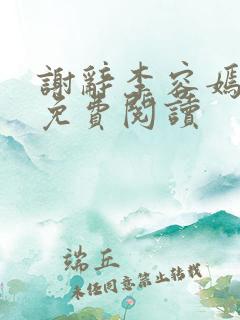 謝辭李容嫣
免費閱讀
端丘
未经同意禁止转载